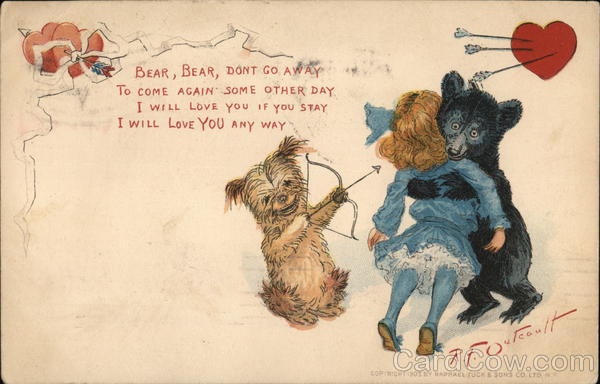 BEAR, BEAR, DONT GO AWAY
TO COME AGAIN SOME OTHER DAY
I WILL LOVE YOU IF YOU STAY
I WILL LOVE YOU ANY WAY
R.F. Outcault
COPYRIGHT 1903 BY RAPHAEL TUCK & SONS CO. LTD. N.Y.
CardCow.com